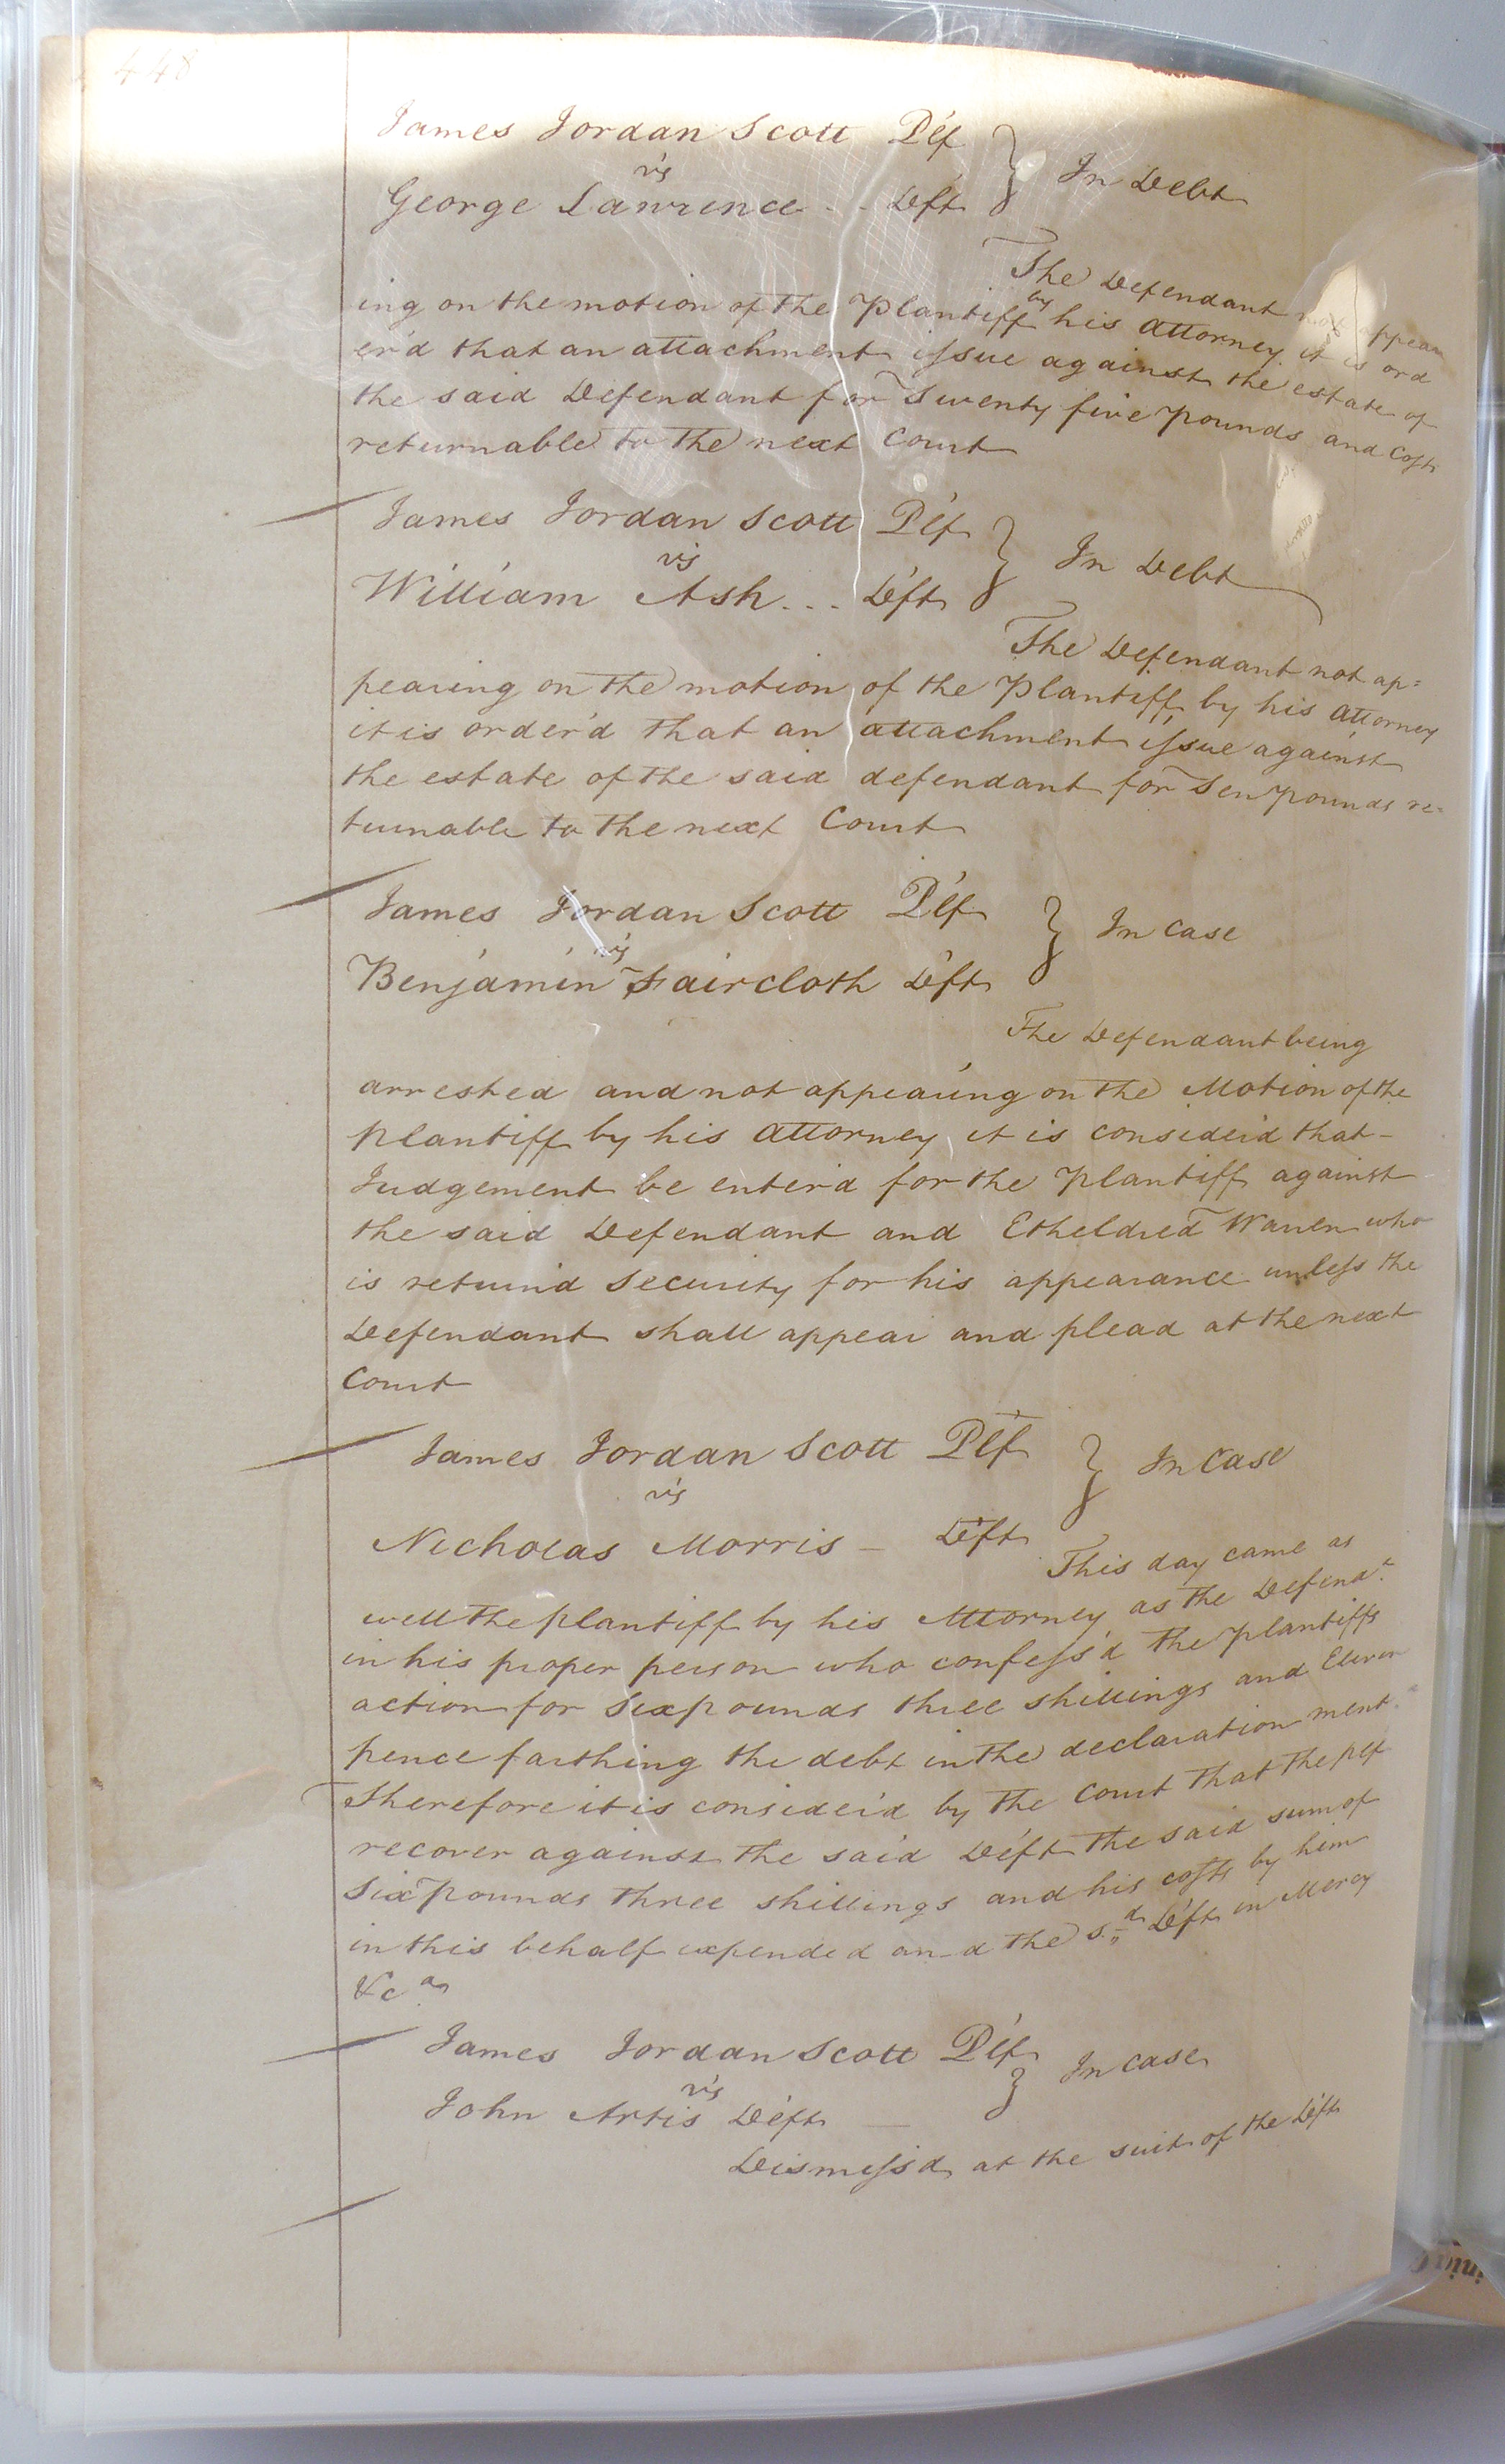 448
James Jordan Scott Pl'f } In Debt
v's
George Lawrence - - Def't
The Defendant not appear
ing on the motion of the Plantiff by his attorney it is ord
er'd that an attachment issue against the estate of
the said Defendant for Twenty five pounds and Costs
returnable to the next Court
James Jordan Scott Pl'f } In Debt
v's
William Ash... Def't
The Defendant not ap=
pearing on the motion of the Plantiff by his attorney
it is order'd that an attachment issue against
the estate of the said defendant for Ten pounds re-
turnable to the next Court
James Jordan Scott Pl'f } In Case
v's
Benjamin Faircloth Def't
The Defendant being
arrested and not appearing on the Motion of the
plantiff by his attorney it is consider'd that -
Judgement be enter'd for the plantiff against
the said Defendant and Etheldred Warren who
is return'd Security for his appearance unless the
Defendant shall appear and plead at the next
Court
James Jordan Scott Pl'f } In Case
v's
Nicholas Morris - Def't
This day came as
well the plantiff by his Attorney as the Defend.t
in his proper person who confess'd the plantiffs
action for Six pounds three shillings and Eleven
pence farthing the debt in the declaration ment.
Therefore it is consider'd by the Court that the plf
recover against the said Def't the said sum of
Six pounds three shillings and his costs by him
in this behalf expended and the s.d Def't in Mercy
&c a
James Jordan Scott Pl'f } In Case
v's
John Artis Def't
Dismiss'd at the suit of the Def't